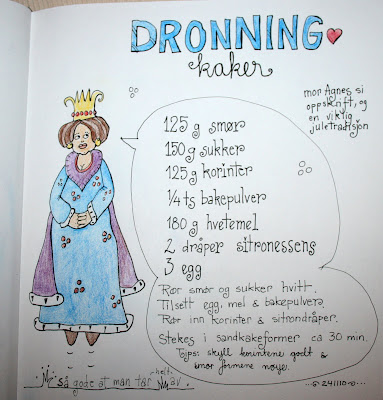 DRONNING
kaker
mor Agnes si
oppskrift, og
en viktig
juletradisjon
125 g smør
150 g sukker
125 g korinter
1/4 ts bakepulver
180 g hvetemel
2 dråper sitronessens
3 egg
Rør smør og sukker hvitt.
Tilsett egg, mel & bakepulver.
Rør inn korinter & sitrondråper.
Stekes i sandkakeformer ca 30 min.
Tips: skyll korintene godt &
smør formene nøye.
så gode at man tar helt av.
241110